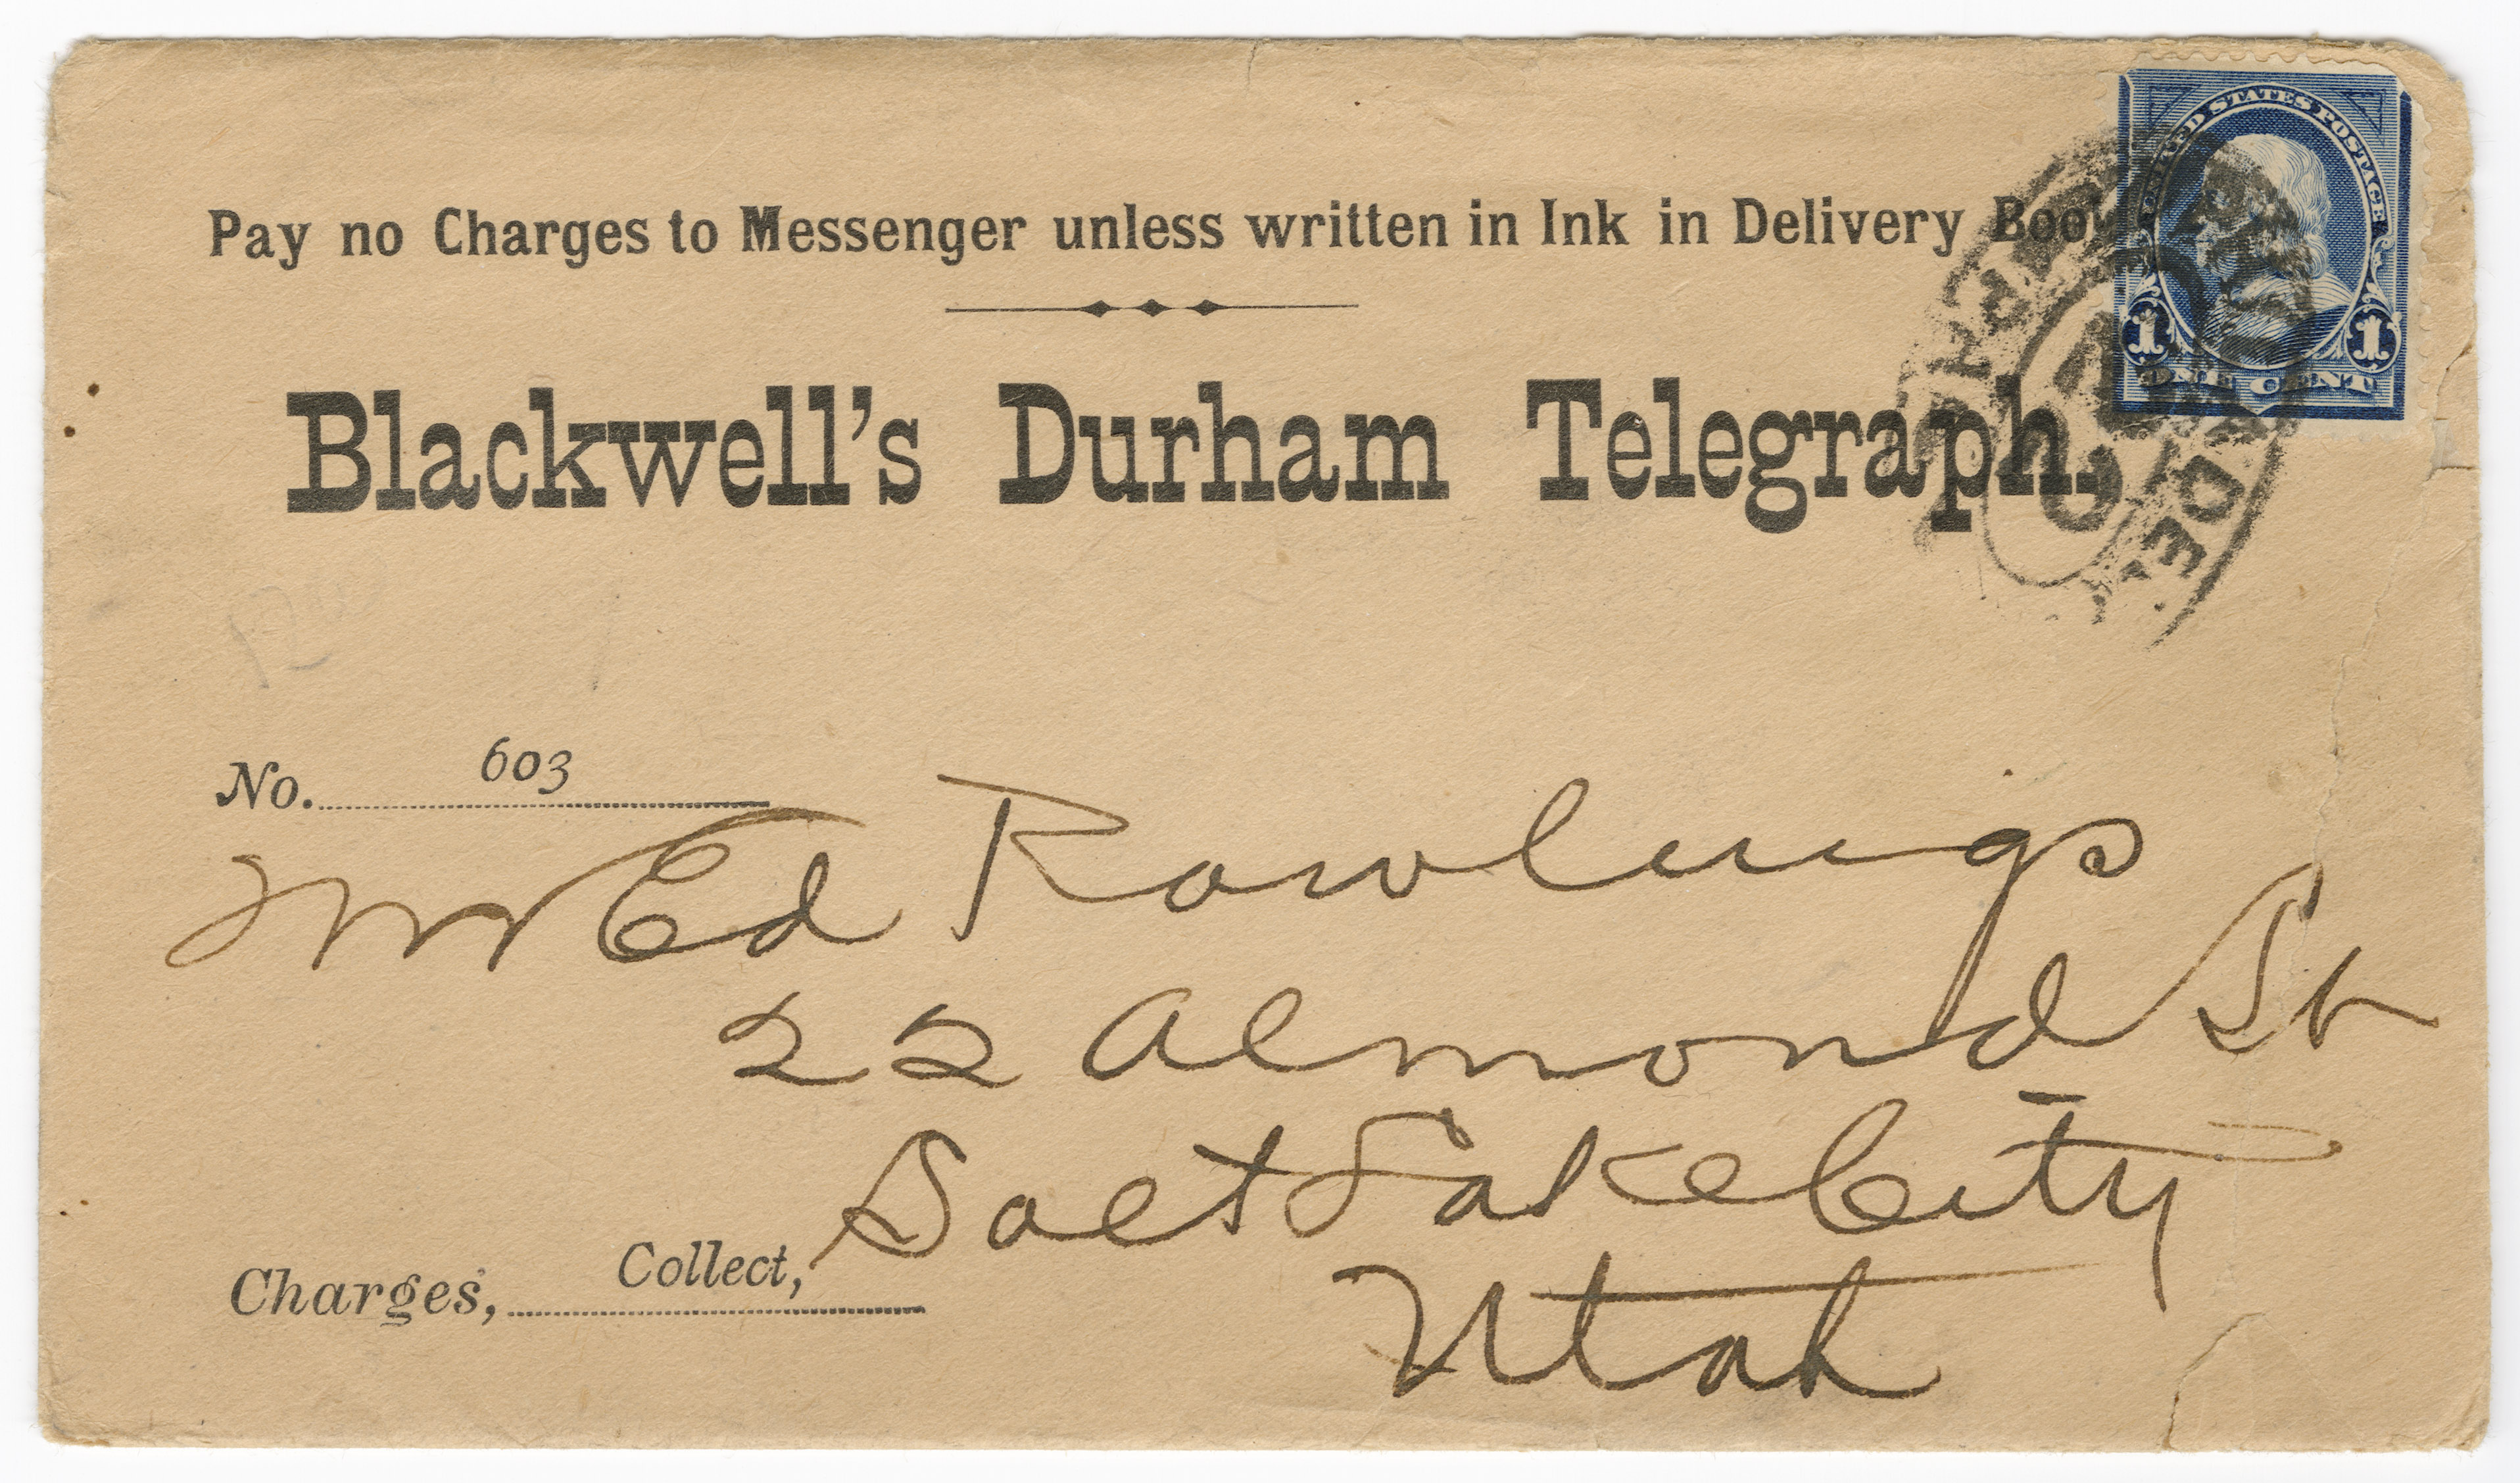 Pay no Charges to Messenger unless written in Ink in Delivery Book
UNITED STATES POSTAGE
1 1
ONE CENT
Blackwell's Durham Telegraph.
No. 603
Mr Ed Rawlings
22 Almond St
Salt Lake City
Utah
Charges, Collect,